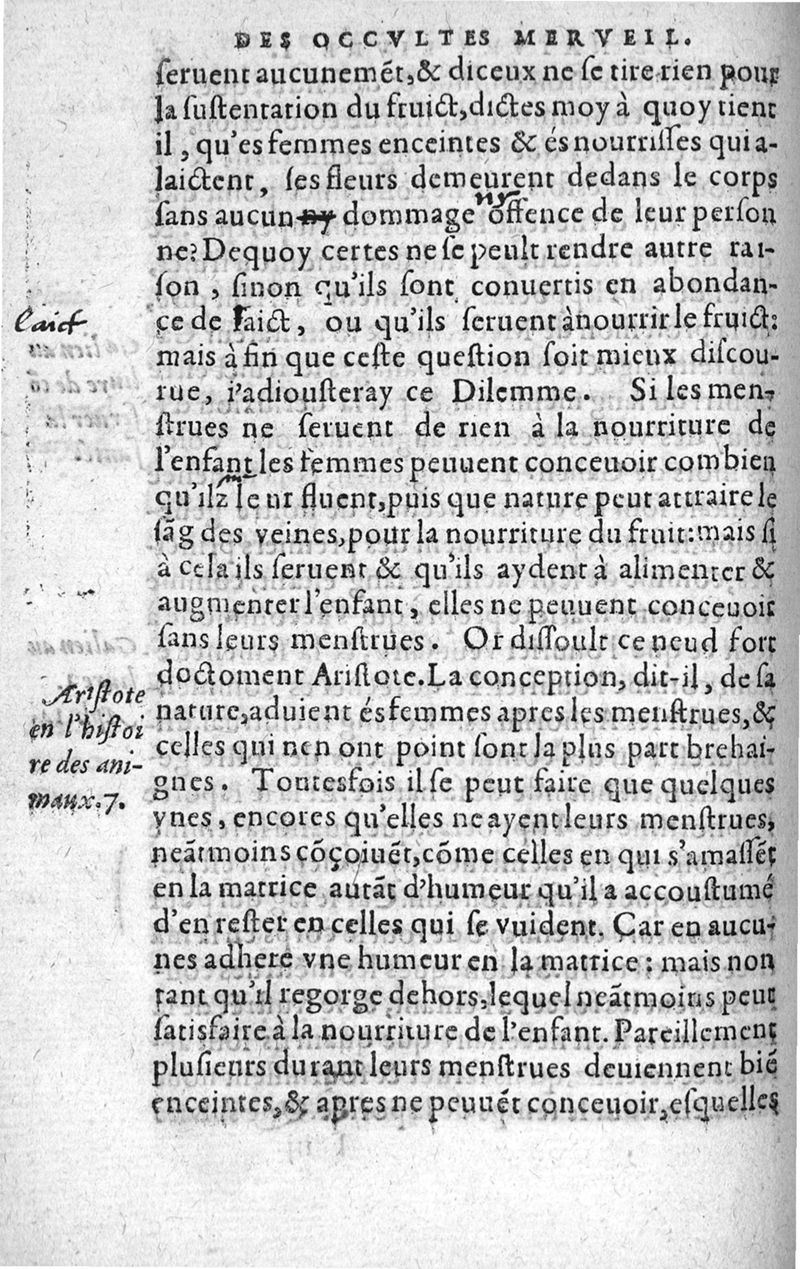 DES OCCVLTES MERVEIL.
ſeruent aucunemẽt,& diceux ne ſe tire rien pour
la ſuſtentation du fruict,dictes moy à quoy tient
il, qu'es femmes enceintes & és nourriſſes qui a-
laictent, ſes fleurs demeurent dedans le corps
ny
ſans aucun ny dommage offence de leur perſon
ne? Dequoy certes ne ſe peult rendre autre rai-
ſon, ſinon qu'ils ſont conuertis en abondan-
laict
ce de faict, ou qu'ils ſeruent à nourrir le fruict:
mais à fin que ceſte queſtion ſoit mieux diſcou-
rue, i'adiouſteray ce Dilemme. Si les men-
ſtrues ne ſeruent de rien à la nourriture de
l'enfant les femmes peuuent conceuoir combien
qu'ilz leur fluent,puis que nature peut attraire le
ſãg des veines,pour la nourriture du fruit:mais ſi
à cela ils ſeruent & qu'ils aydent à alimenter &
augmenter l'enfant, elles ne peuuent conceuoir
ſans leurs menſtrues. Or diſſoult ce neud fort
doctoment Ariſtote.La conception, dit-il, de ſa
nature,aduient és femmes apres les menſtrues,&
celles qui nen ont point ſont la plus part brehai-
gnes. Toutesfois il ſe peut faire que quelques
vnes, encores qu'elles ne ayent leurs menſtrues,
neãtmoins cõçoiuẽt,cõme celles en qui s'amaſſẽt
en la matrice autãt d'humeur qu'il a accouſtumé
d'en reſter en celles qui ſe vuident. Car en aucu-
nes adhere vne humeur en la matrice: mais non
tant qu'il regorge dehors,lequel neãtmoins peut
ſatisfaire à la nourriture de l'enfant. Pareillement
pluſieurs durant leurs menſtrues deuiennent biẽ
enceintes,& apres ne peuuẽt conceuoir,eſquelles
Ariſtote
en l'hiſtoi
re des ani-
maux.7.